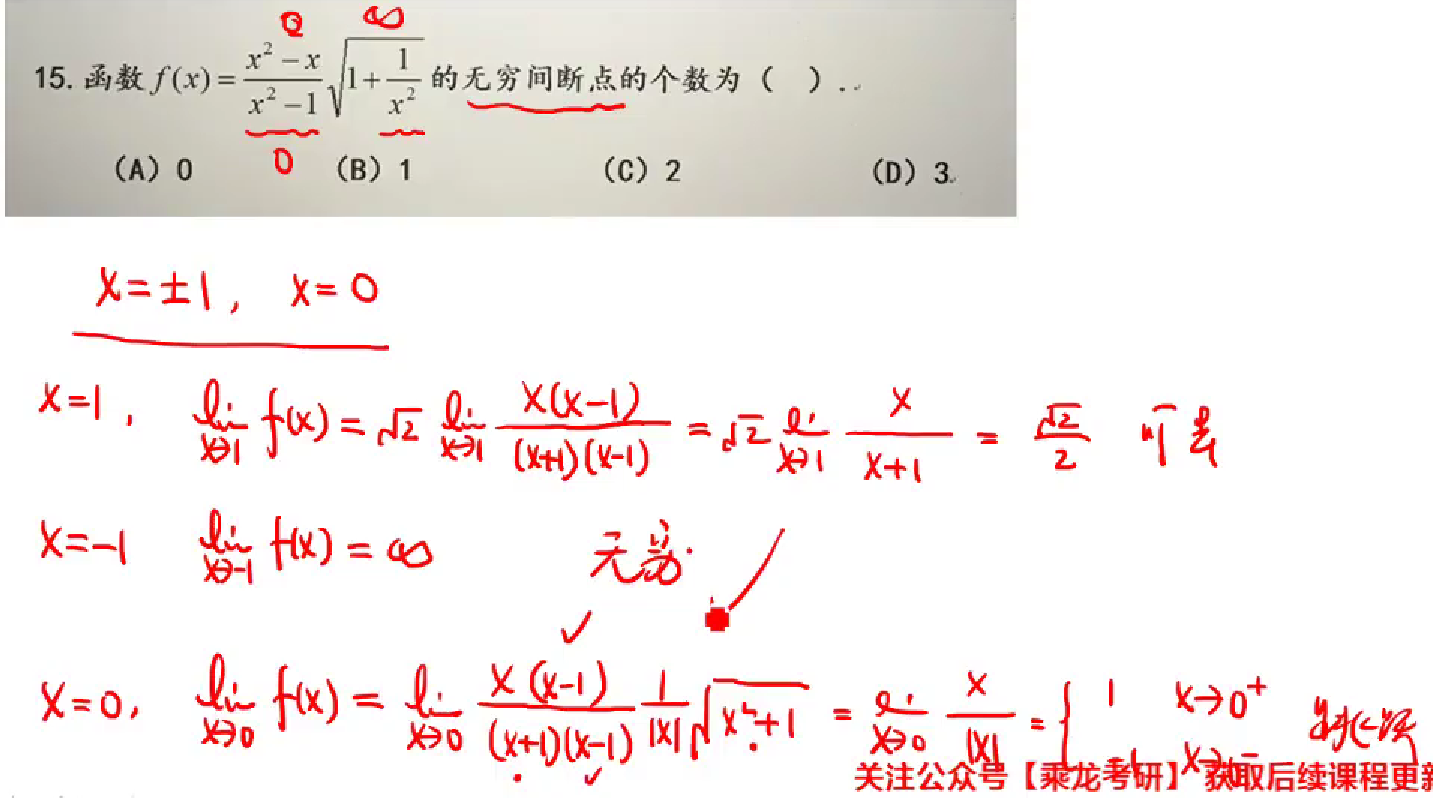 0 ∞
15. 函数 f(x) = \frac{x^2 - x}{x^2 - 1} \sqrt{1 + \frac{1}{x^2}} 的无穷间断点的个数为（ ）.
0
（A）0 （B）1 （C）2 （D）3
x = ±1, x = 0
x=1, \lim_{x→1} f(x) = √2 \lim_{x→1} \frac{x(x-1)}{(x+1)(x-1)} = √2 \lim_{x→1} \frac{x}{x+1} = \frac{√2}{2} 可去
x=-1 \lim_{x→-1} f(x) = ∞ 无穷.
x=0, \lim_{x→0} f(x) = \lim_{x→0} \frac{x(x-1)}{(x+1)(x-1)} \frac{1}{|x|} \sqrt{x^2+1} = \lim_{x→0} \frac{x}{|x|} = { 1 x→0⁺ 跳跃
-1 x→0⁻
关注公众号【乘龙考研】获取后续课程更新